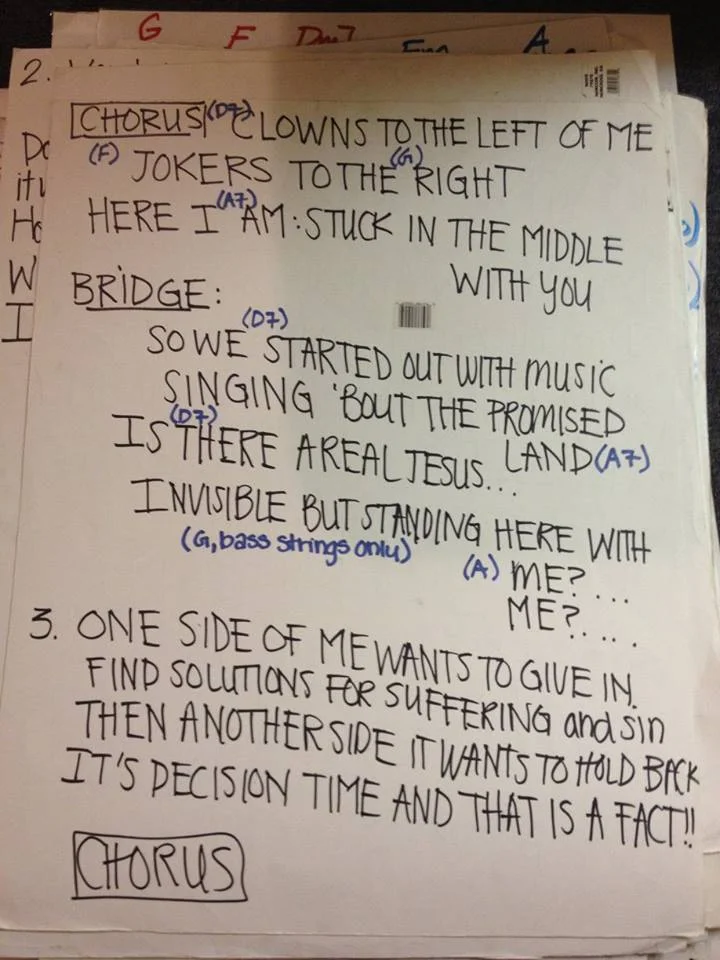 G F Dm7 Em A
2.
CHORUS (D7) CLOWNS TO THE LEFT OF ME
(F) JOKERS TO THE (G) RIGHT
HERE I (A7) AM: STUCK IN THE MIDDLE
WITH YOU
BRIDGE:
(D7)
SO WE STARTED OUT WITH MUSIC
SINGING 'BOUT THE PROMISED
LAND (A7)
(D7)
IS THERE A REAL JESUS...
INVISIBLE BUT STANDING HERE WITH
(G, bass strings only) (A) ME?...
ME?....
3. ONE SIDE OF ME WANTS TO GIVE IN.
FIND SOLUTIONS FOR SUFFERING and sin
THEN ANOTHER SIDE IT WANTS TO HOLD BACK
IT'S DECISION TIME AND THAT IS A FACT!!
CHORUS